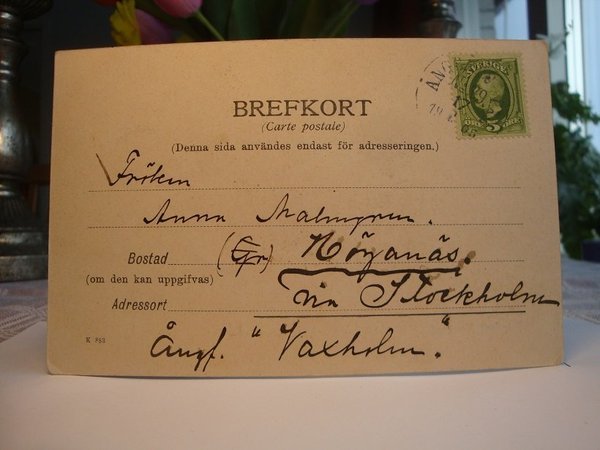 BREFKORT
(Carte postale)
(Denna sida användes endast för adresseringen.)
SVERIGE
5
Fröken
Anna Malmgren.
Bostad
(om den kan uppgifvas)
Nöjanäs.
Adressort
via Stockholm
Ångf. "Vaxholm."
K 853